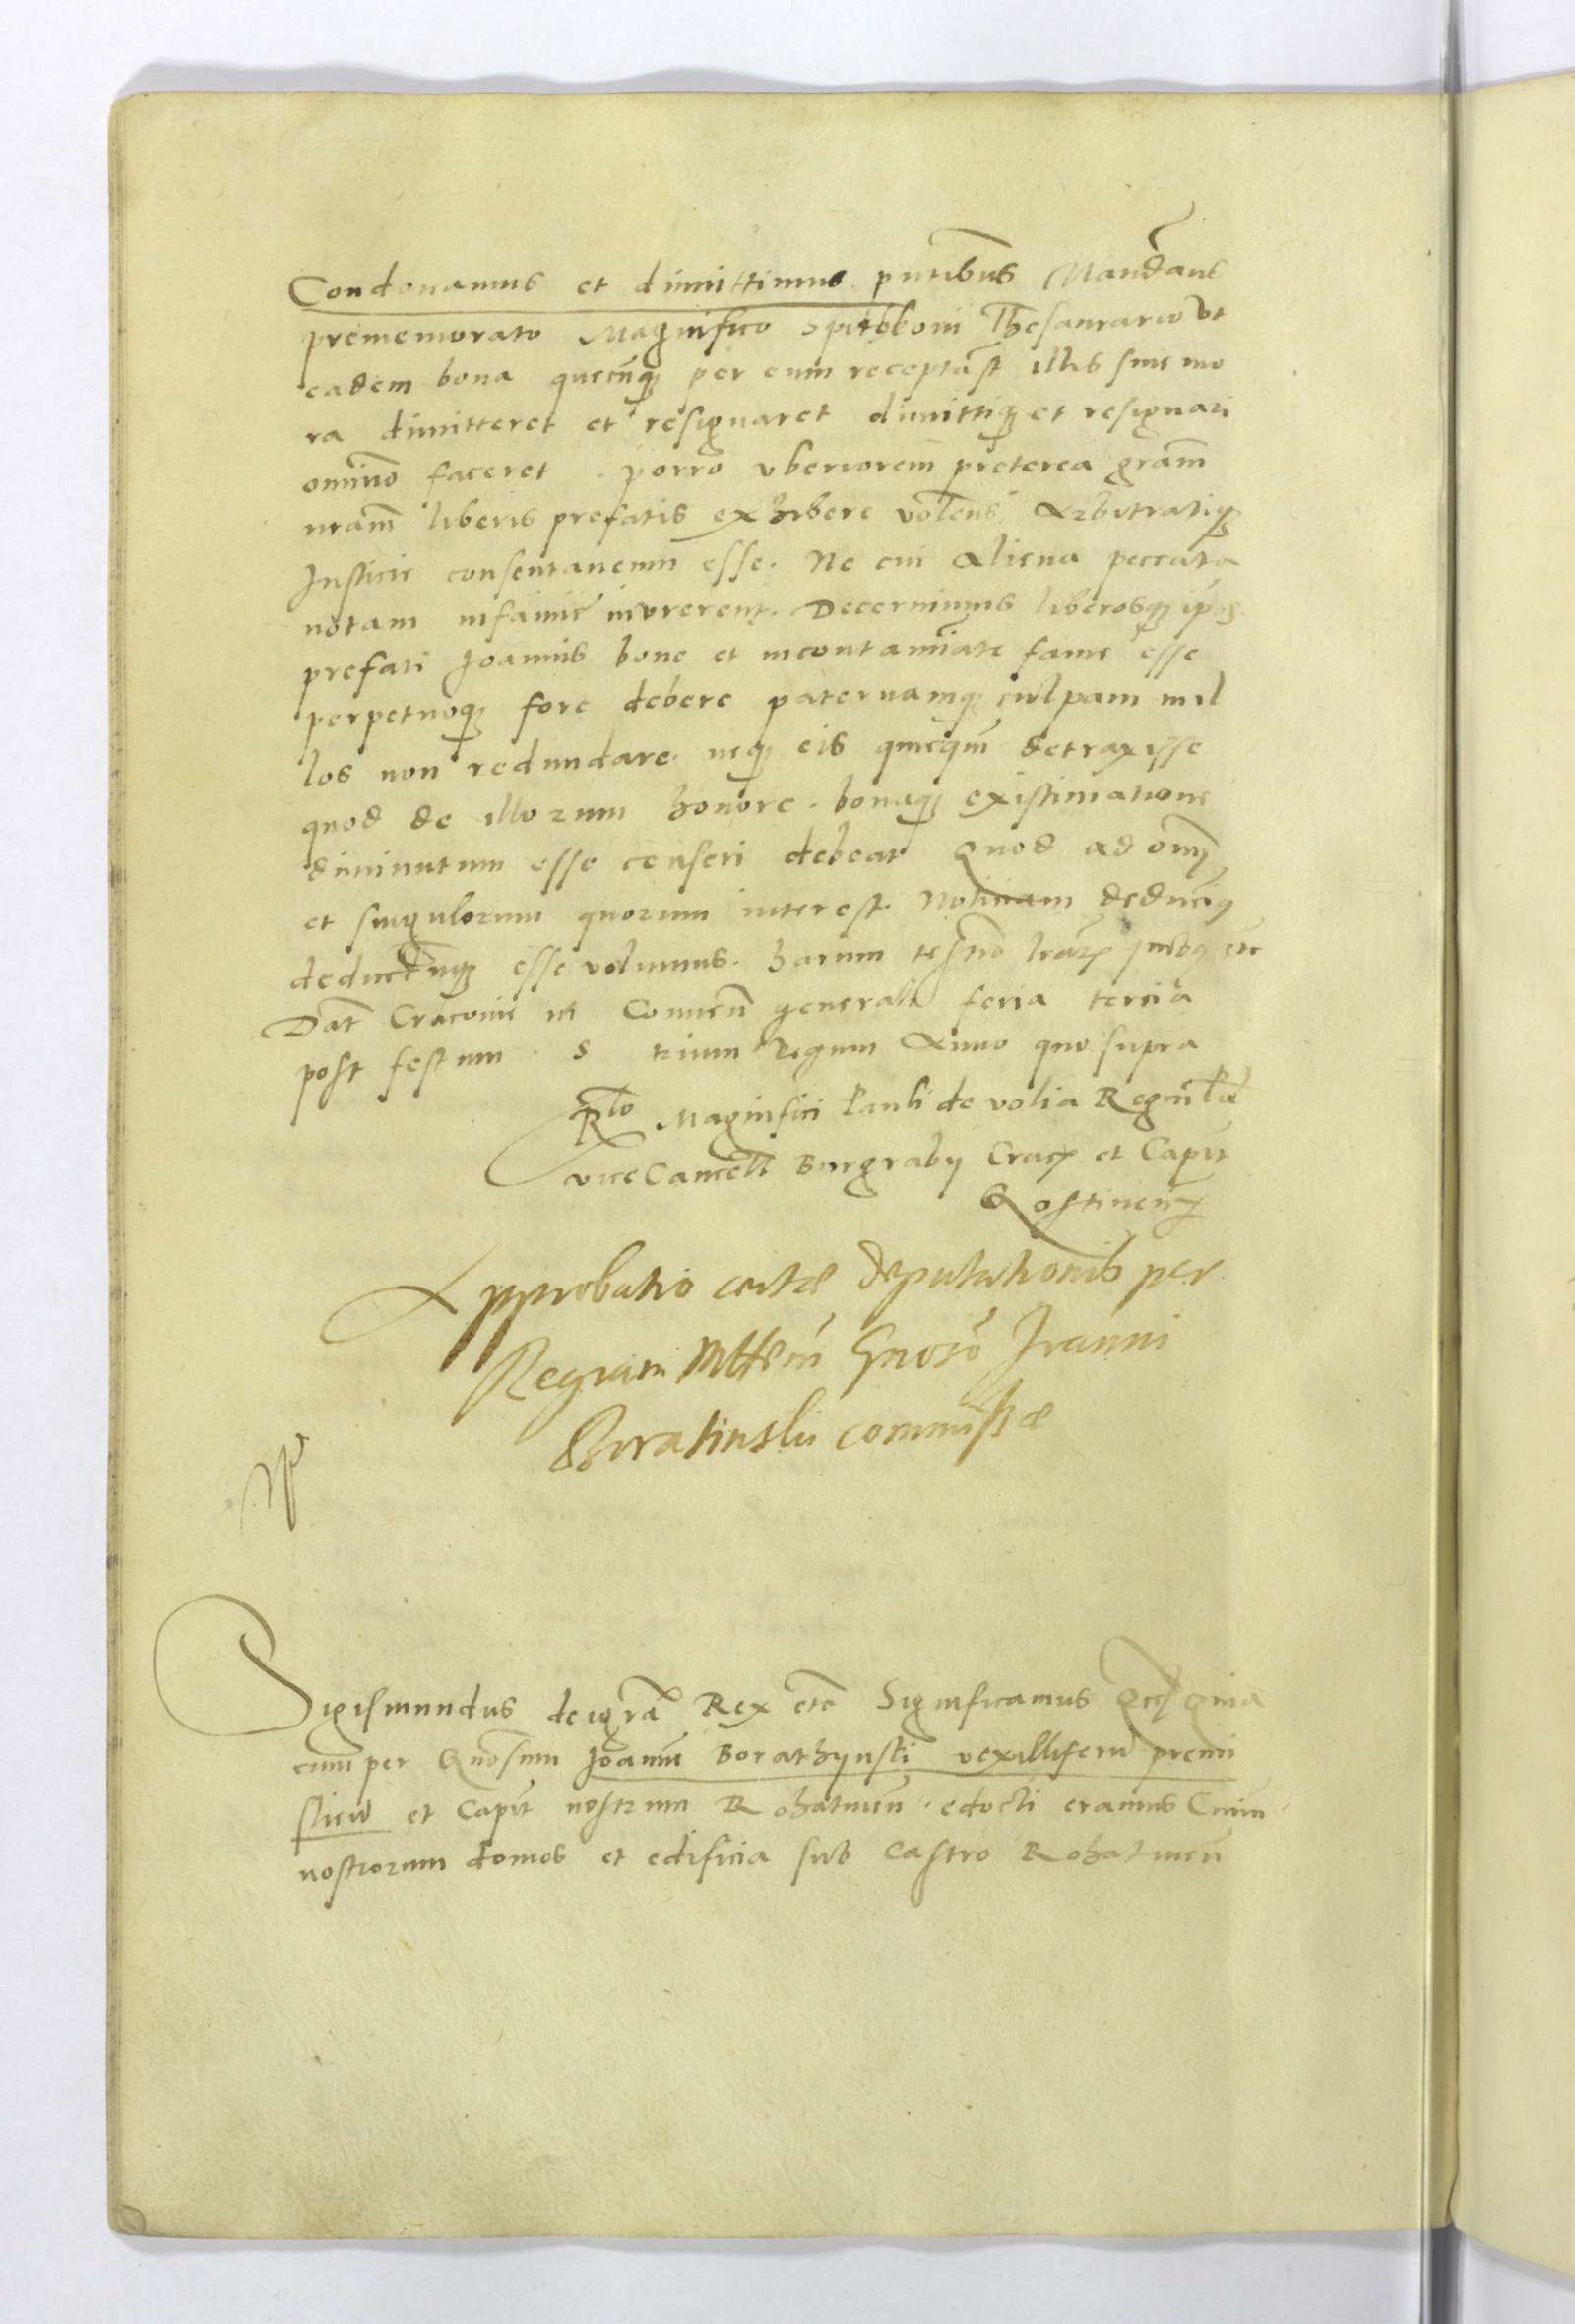 Condonamus et dimittimus pntibus Mandans
prememorato Magnifico Spithkoni Thesaurario vt
eadem bona quecunq per eum recepta st illis sine mo
ra dimitteret et resignaret dimittiq et resignari
omnino faceret . porro vberiorem preterea gram
nram liberis prefatis exhibere volens Arbitratiq
Justicie consentaneum esse . Ne cui aliena peccata
notam infamie inurerent . Decernimus liberosq ipos
prefati Joannis bone et incontaminate fame esse
perpetuoq fore debere paternamq culpam in il
los non redundare . neq eis quicqm detraxisse
quod de illorum honore . bonaq existimatione
diminutum esse censeri debeat Quod ad omn
et singulorum quorum interest . Noticiam deducig
deductumq esse volumus . harum testio lrar quibg etc
Dat Cracovie in Conuen generali feria tercia
post festum . S trium Regum Anno quo supra
Rlo Magnifici Pauli de volia Regni Pol
viceCancell Burgrabij Crac et Capit
Gostinen
Approbatio certæ deputationis per
Regiam Mttem Gnoso Joanni
Boratinski commissæ
Sigismundus dei gra Rex etc Significamus Qtc Quia
cum per Gnosum Joannem Borathynski vexilliferum premi
sliens et Capit nostrum Rohatinen . edocti eramus Ciuium
nostrorum domos et edificia sub Castro Rohatinen